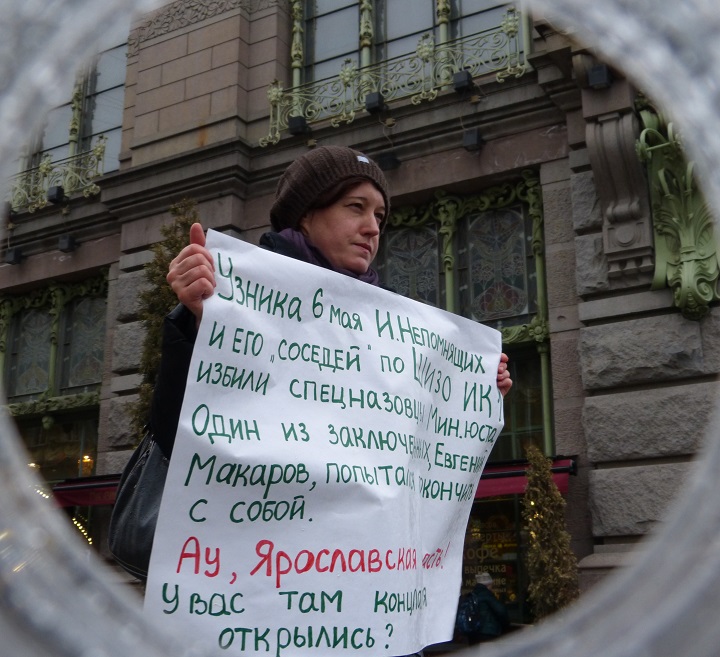 Узника 6 мая И.Непомнящих
и его „соседей" по ШИЗО ИК
избили спецназовцы Мин.юста
Один из заключенных, Евгений
Макаров, попытался покончить
с собой.
Ау, Ярославская
У вас там
открылись?
выпечка